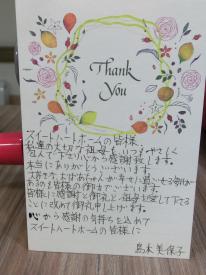 Thank
You
スイートハートホームの皆様
私達の大切な祖母を、いつもやさしく
包んで下さり心から感謝致します。
本当にありがとうございます。
大好きなおばあちゃんが幸せに過ごせる場所が
あるのも皆様の御かげでございます。
皆様に感謝すると御礼と祖母を愛して下さる
ことに改めて御礼申し上げます。
心から感謝の気持ちを込めて
スイートハートホームの皆様に
島木 美保子